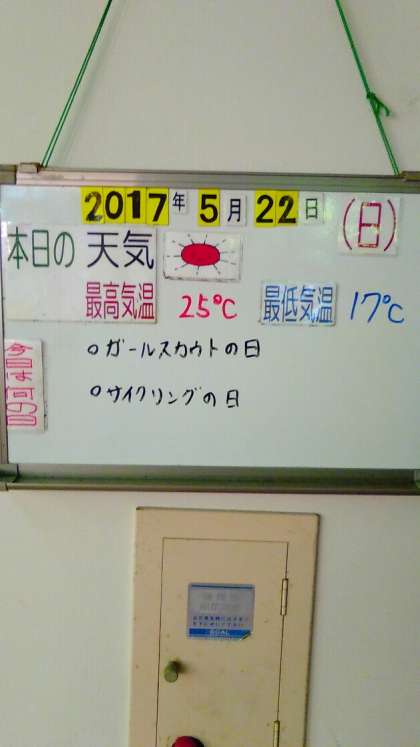 2017年 5月 22日 (日)
本日の 天気
最高気温 25℃ 最低気温 17℃
今日は何の日
○ガールスカウトの日
○サイクリングの日